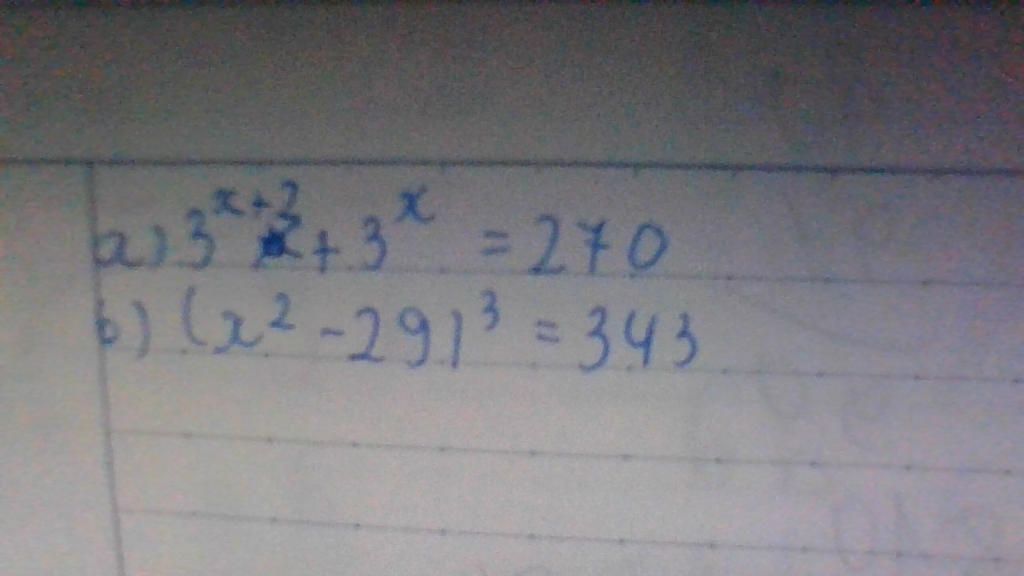 a) 3^x+2 + 3^x = 270
b) (x² - 29)³ = 343